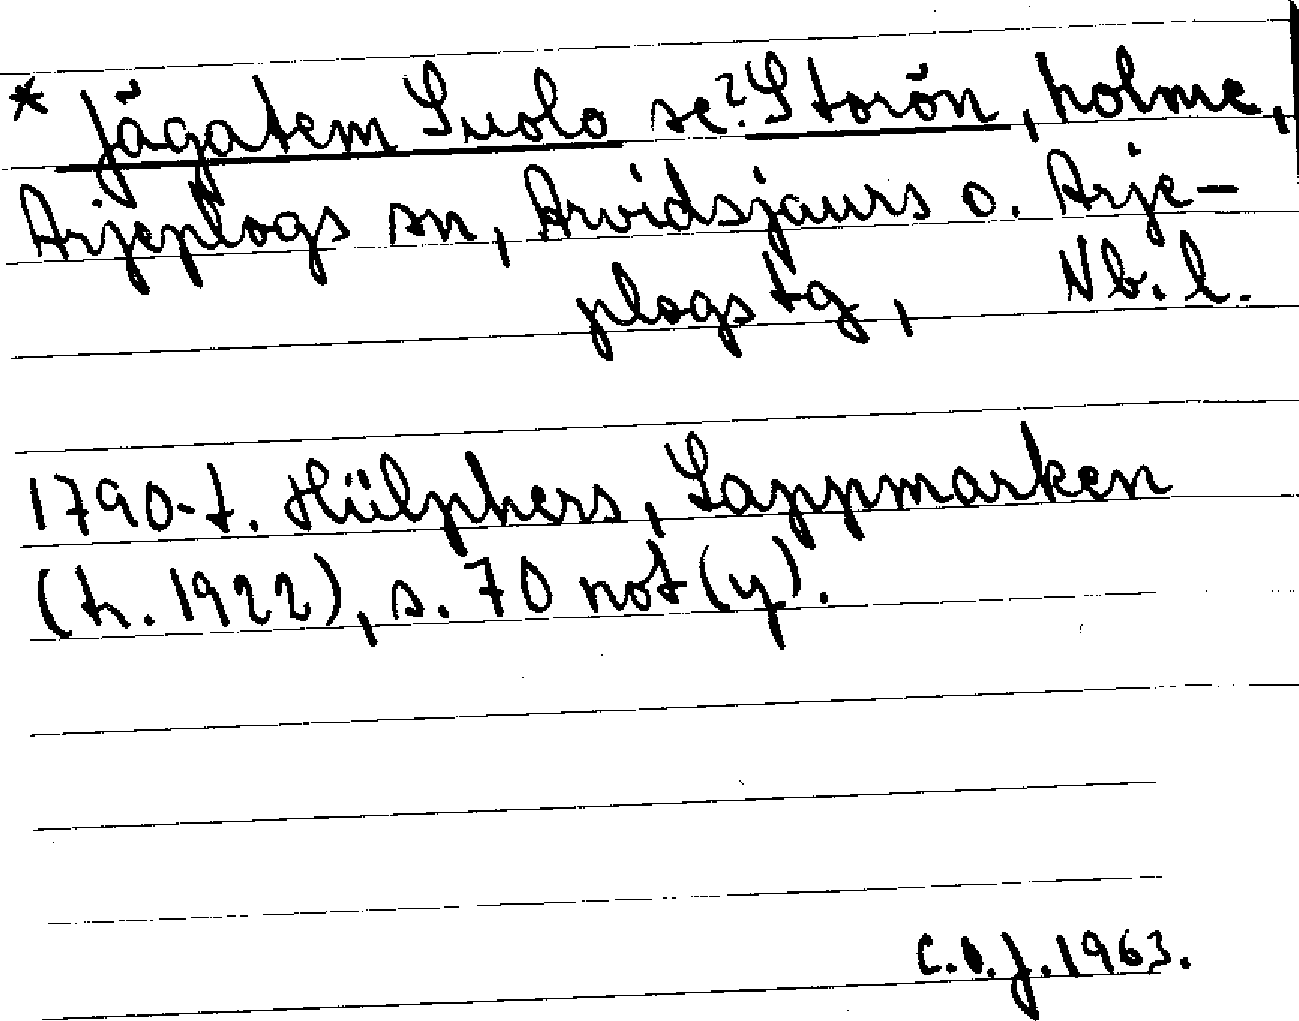 * Jågatem Suolo se? Storön, holme,
Arjeplogs sn, Arvidsjaurs o. Arje-
plogs tg, Nb. l.
1790-t. Hülphers, Lappmarken
(tr. 1922), s. 70 not (y).
C.O.J. 1963.